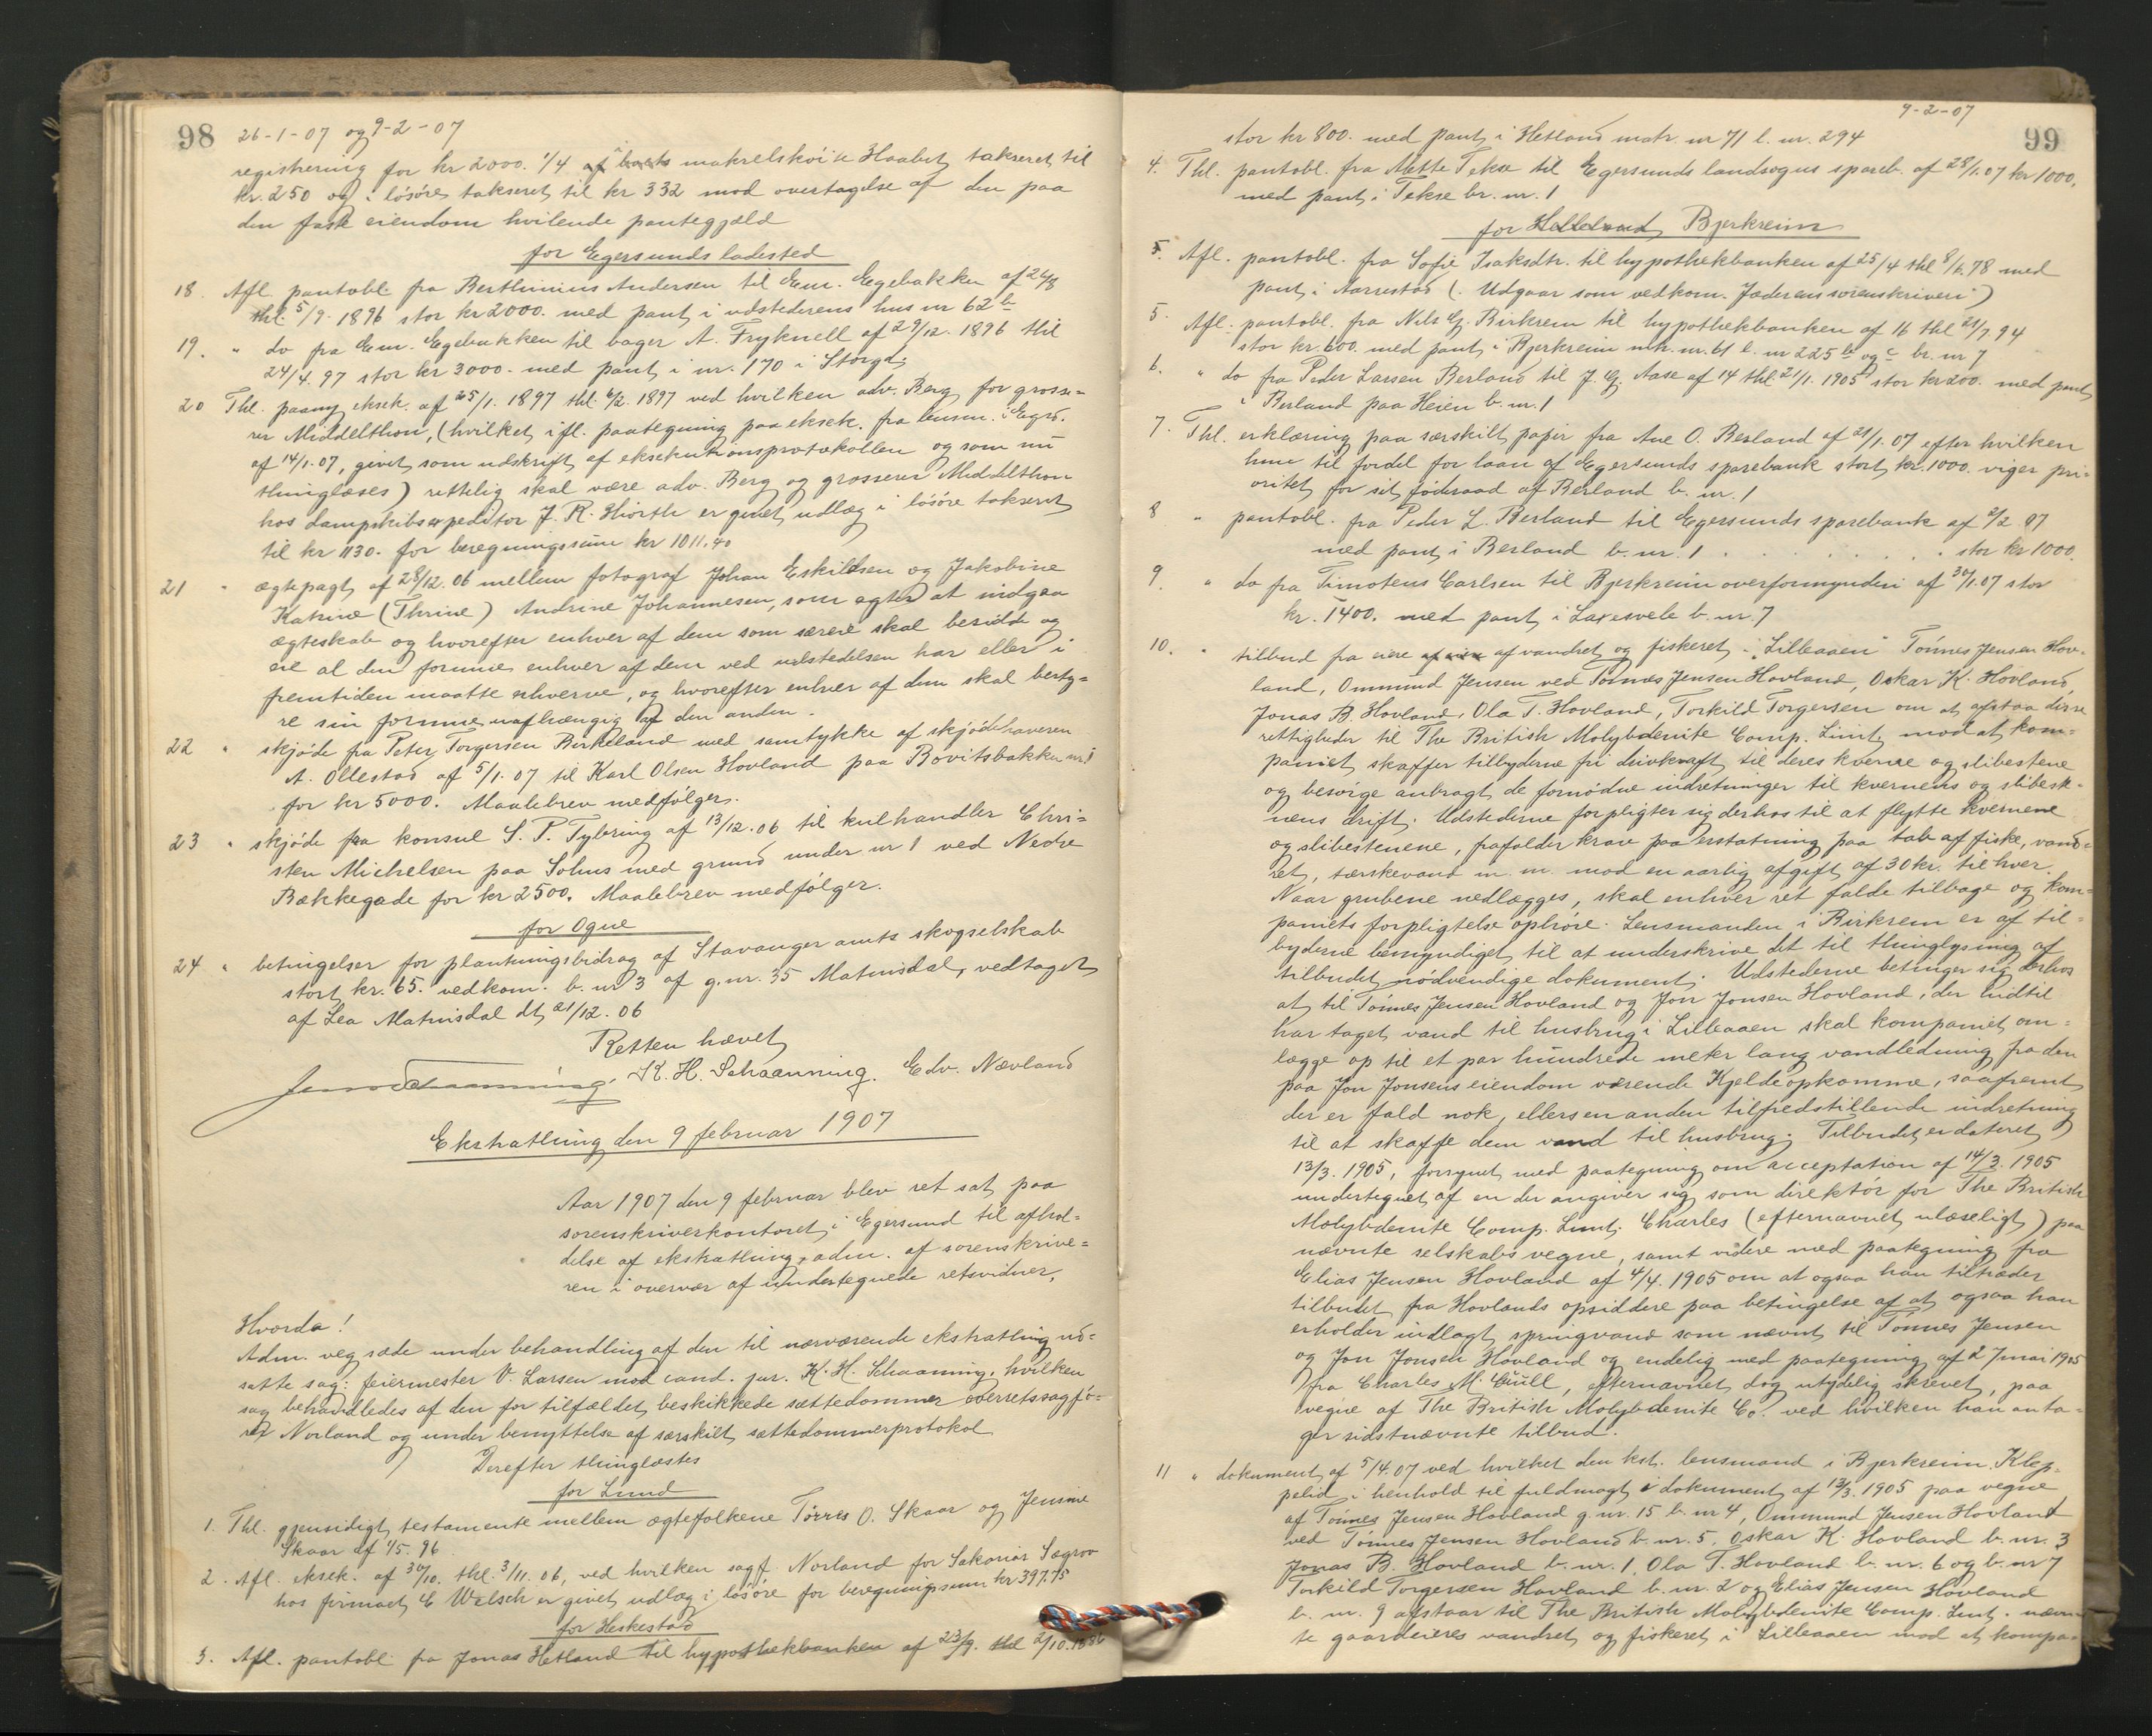 98 26-1-07 og 9-2-07
registrering for kr 2000. 1/4 i makrelskøite Haabet takseret til
kr. 250 og i løsøre takseret til kr 332 mod overtagelse af den paa
den faste eiendom hvilende pantegjæld
for Egersunds ladested
18. Afl. pantobl fra Berthinius Andersen til Em. Egebakken af 24/8
thl. 5/9. 1896 stor kr 2000. med pant i udstederens hus nr 62 b
19. " do fra Em. Egebakken til bager A. Fryknell af 29/12. 1896 thl
24/4. 97 stor kr 3000. med pant i nr. 170 i Storgd.
20 Thl. paany eksek. af 25/1. 1897 thl. 6/2. 1897 ved hvilken adv. Berg for grosse=
rer Middelthon, (hvilket ifl. paategning paa eksek. fra lensm. i Egrs.
af 14/1.07, givet som udskrift af eksekutionsprotokollen og som nu
thinglæses) rettelig skal være adv. Berg og grosserer Middelthon
hos dampskibsexpeditør J. R. Hiorth er givet udlæg i løsøre takseret
til kr 1130. for beregningssum kr 1011.40
21 " ægtepagt af 28/12. 06 mellem fotograf Johan Eskildsen og Jakobine
Katrine (Thrine) Andrine Johannesen, som agter at indgaa
ægteskab og hvorefter enhver af dem som særeie skal besidde og
eie al den formue enhver af dem ved udstedelsen har eller i
fremtiden maatte erhverve, og hvorefter enhver af dem skal besty=
re sin formue uafhængig af den anden.
22 " skjøde fra Peter Torgersen Birkeland med samtykke af skjødehaveren
A. Ollestad af 5/1.07 til Karl Olsen Hovland paa Bovitsbakken nr. 1
for kr 5000. Maalebrev medfølger.
23 " skjøde fra konsul S. P. Tybring af 13/12.06 til kulhandler Chri=
sten Michelsen paa Søhus med grund under nr 1 ved Nedre
Bækkegade for kr 2500. Maalebrev medfølger.
for Ogne
24 " betingelser for plantningsbidrag af Stavanger amts skogselskab
stort kr. 65. vedkom. b. nr 3 af g.nr. 35 Matnisdal, vedtaget
af Lea Matnisdal dt. 21/12. 06
Retten hævet
Schaanning. K. H. Schaanning. Edv. Nævland
Ekstrathing den 9 februar 1907
Aar 1907 den 9 februar blev ret sat paa
sorenskriverkontoret i Egersund til afhol=
delse af ekstrathing, adm. af sorenskrive=
ren i overvær af undertegnede retsvidner,
Hvorda!
Adm. veg sæde under behandling af den til nærværende ekstrathing ud=
satte sag: feiermester V. Larsen mod cand. jur. K. H. Schaanning, hvilken
sag behandledes af den for tilfældet beskikkede sættedommer overretssagfø=
rer Norland og under benyttelse af særskilt sættedommerprotokol
Derefter thinglæstes
for Lund
1. Thl. gjensidigt testamente mellem ægtefolkene Tørres O. Skaar og Jensine
Skaar af 1/5. 96
2. Afl. eksek. af 30/10. thl. 3/11. 06, ved hvilken sagf. Norland for Sakarias Sægrov
hos firmaet E Welsch er givet udlæg i løsøre for beregningssum kr 397.75
for Heskestad
3. Afl. pantobl. fra Jonas Hetland til hypothekbanken af 23/9. thl 2/10.1886
9-2-07
99
stor kr 800. med pant i Hetland matr. nr 71 l. nr. 294
4. Thl. pantobl. fra Mette Tekse til Egersunds landsogns spareb. af 28/1.07 kr 1000,
med pant i Tekse br. nr. 1
for Helleland, Bjerkreim
5. Afl. pantobl. fra Sofie Isaksdtr. til hypothekbanken af 25/4 thl 8/6.78 med
pant i Aarrestad (. Udgaar som vedkom. Jæderens sorenskriveri)
5. Afl. pantobl. fra Nils G. Birkrem til hypothekbanken af 16 thl 21/7 94
stor kr. 600. med pant i Bjerkreim mtr. nr. 61 l. nr 225 b og c br. nr 7
6. " do fra Peder Larsen Berland til J. G. Aase af 14 thl. 21/1. 1905 stor kr 200. med pant
i Berland paa Heien b. nr. 1
7. Thl. erklæring paa særskilt papir fra Ane O. Berland af 21/1.07 efter hvilken
hun til fordel for laan af Egersunds sparebank stort kr. 1000. viger pri=
oritet for sit føderaad af Berland b. nr. 1
8 " pantobl. fra Peder L. Berland til Egersunds sparebank af 2/2 07
med pant i Berland b. nr. 1 . . . . . . . . stor kr 1000.
9. " do fra Timoteus Carlsen til Bjerkreim overformynderi af 30/1.07 stor
kr. 1400. med pant i Laxesvele b. nr. 7
10. " tilbud fra eiere af vandret og fiskeret i "Lilleaaen" Tønnes Jensen Hov=
land, Ommund Jensen ved Tønnes Jensen Hovland, Oskar K. Hovland,
Jonas B. Hovland, Ola T. Hovland, Torkild Torgersen om at afstaa disse
rettigheder til The British Molybdenite Comp. Limt. mod at kom=
paniet skaffer tilbyderne fri drivkraft til deres kverne og slibestene
og besørge anbragt de fornødne indretninger til kvernens og slibeste=
nens drift. Udstederne forpligter sig derhos til at flytte kvernene
og slibestenene, frafalder krav paa erstatning paa tab af fiske, vand=
ret, tærskevand m. m. mod en aarlig afgift af 30 kr. til hver.
Naar grubene nedlægges, skal enhver ret falde tilbage og kom=
paniets forpligtelse ophøre. Lensmanden i Birkrem er af til=
byderne bemyndiget til at underskrive det til thinglysning af
tilbudet nødvendige dokument. Udstederne betinger sig derhos
at til Tønnes Jensen Hovland og Jon Jonsen Hovland, der hidtil
har taget vand til husbrug i Lilleaaen skal kompaniet om=
lægge op til et par hundrede meter lang vandledning fra den
paa Jon Jonsens eiendom værende Kjeldeopkomme, saafremt
der er fald nok, ellers en anden tilfredstillende indretning
til at skaffe dem vand til husbrug. Tilbudet er dateret
13/3. 1905, forsynet med paategning om acceptation af 14/3. 1905
undertegnet af en der angiver sig som direktør for The British
Molybdenite Comp. Limt. Charles (efternavnet ulæseligt) paa
nævnte selskabs vegne, samt videre med paategning fra
Elias Jensen Hovland af 4/4. 1905 om at ogsaa han tiltræder
tilbudet fra Hovlands opsiddere paa betingelse af at ogsaa han
erholder indlagt springvand som nævnt til Tønnes Jensen
og Jon Jonsen Hovland og endelig med paategning af 27 mai 1905
fra Charles M. Quill, efternavnet dog utydelig skrevet, paa
vegne af The British Molybdenite Co. ved hvilken han anta=
ger sidstnævnte tilbud.
11 " dokument af 5/4.07 ved hvilket den kst. lensmand i Bjerkreim, Klep=
pelid i henhold til fuldmagt i dokument af 13/3. 1905 paa vegne
af Tønnes Jensen Hovland g. nr. 15 b. nr 4, Ommund Jensen Hovland
ved Tønnes Jensen Hovland b. nr. 5, Oskar K. Hovland b. nr. 3
Jonas B. Hovland b. nr. 1, Ola T. Hovland b. nr. 6 og b. nr 7
Torkild Torgersen Hovland b. nr. 2 og Elias Jensen Hovland
b. nr. 9 afstaar til The British Molybdenite Comp. Lmt. nævn=
te gaardeieres vandret og fiskeret i Lilleaaen mod at kompa=